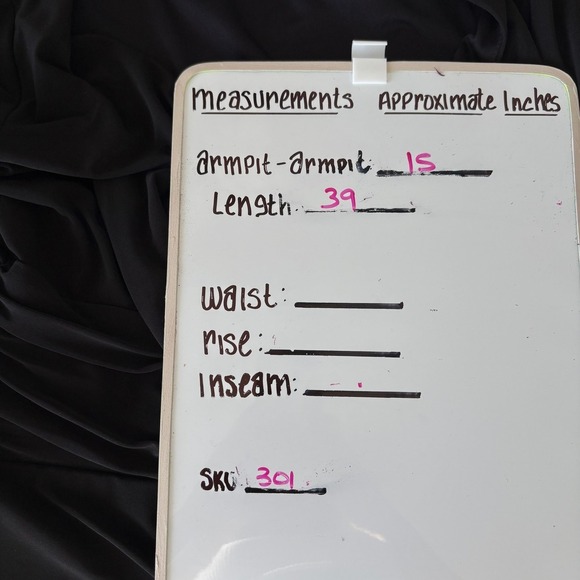 measurements Approximate Inches
armpit-armpit: 15
Length 39
waist:
rise:
Inseam:
SKU 301